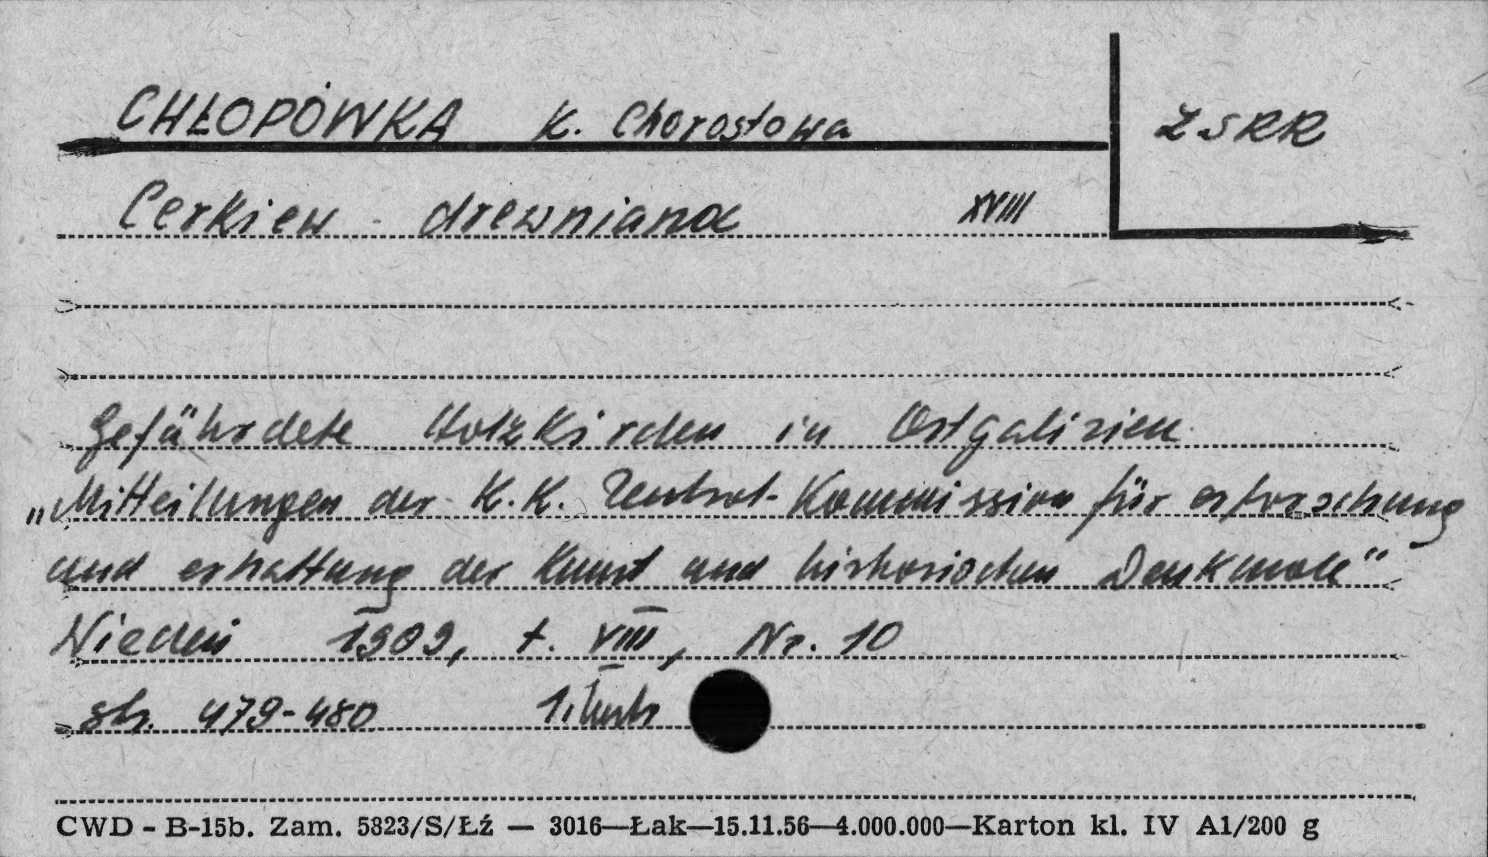 CHŁOPÓWKA k. Chorostowa
ZSRR
Cerkiew drewniana XVIII
Gefährdete Holzkirchen in Ostgalizien
„Mitteilungen der K.K. Zentral-Kommission für erforschung
und erhaltung der Kunst und historischen Denkmale"
Wiedeń 1909, t. VIII, Nr. 10
str. 479-480 1 ilustr
CWD - B-15b. Zam. 5823/S/Łź — 3016—Łak—15.11.56—4.000.000—Karton kl. IV A1/200 g